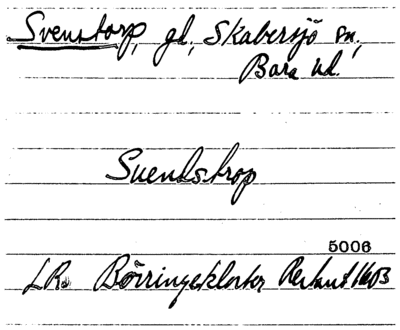 Svenstorp, gd, Skabersjö sn,
Bara hd.
Suendstrop
5006
LR. Börringekloster 1603